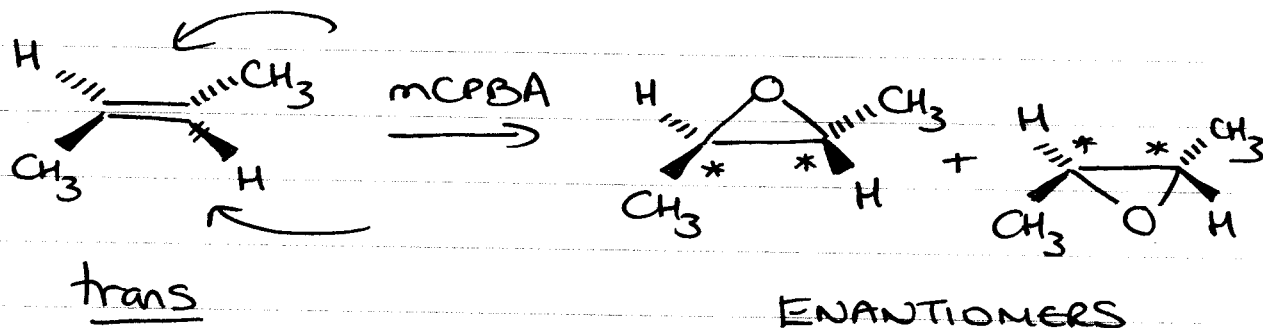 H CH3 mCPBA H O CH3 H CH3
CH3 H CH3 * * H + * *
CH3 O H
trans ENANTIOMERS